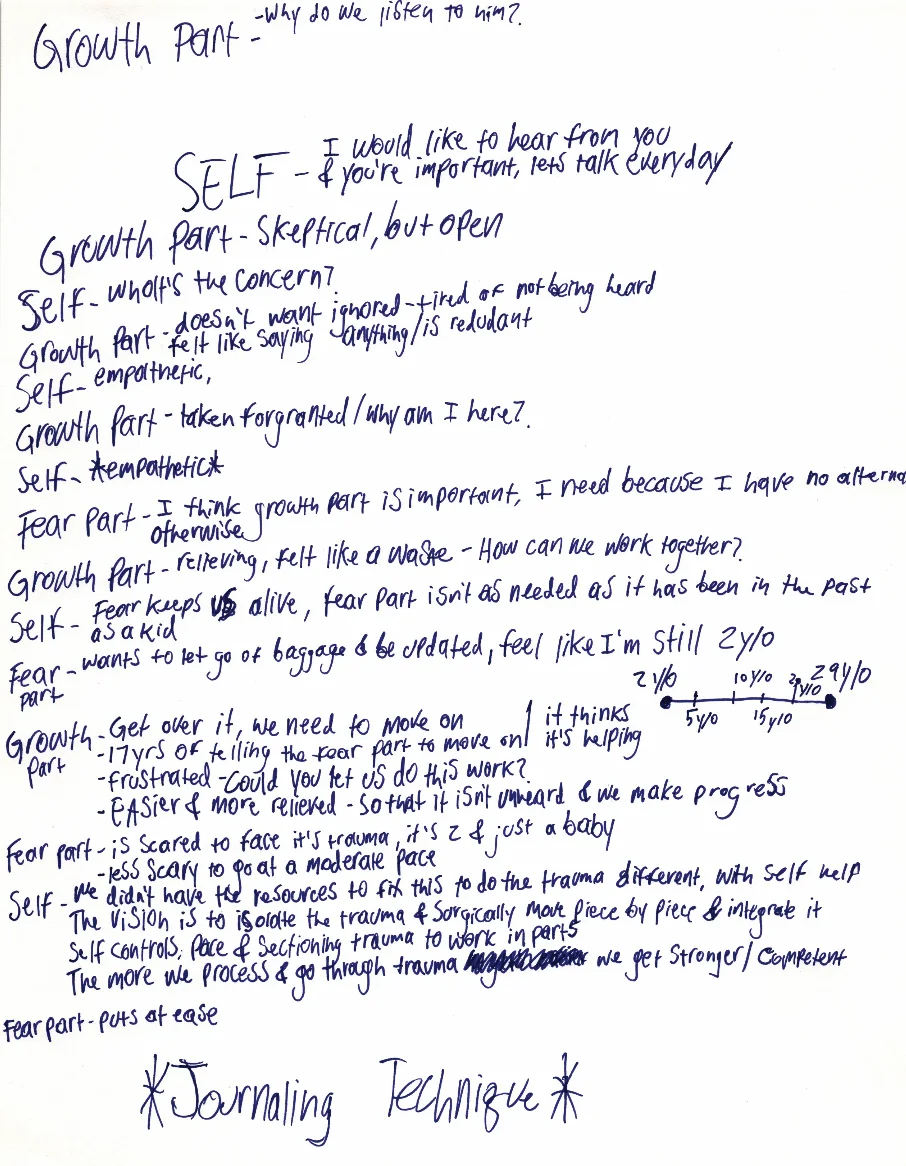 Growth Part - - Why do we listen to him?
SELF - I would like to hear from you
& you're important, lets talk everyday
Growth Part - Skeptical, but open
Self - what's the concern?
Growth Part - doesn't want ignored - tired of not being heard
felt like saying anything / is redudant
Self - empathetic,
Growth Part - taken forgranted / why am I here?
Self - *empathetic*
Fear Part - I think growth part is important, I need because I have no alterna
otherwise
Growth Part - relieving, felt like a waste - How can we work together?
Self - Fear keeps us alive, fear part isn't as needed as it has been in the past
as a kid
Fear part - wants to let go of baggage & be updated, feel like I'm still 2 y/o
2 y/o 5 y/o 10 y/o 15 y/o 29 y/o
Growth Part - Get over it, we need to move on / it thinks
- 17 yrs of telling the fear part to move on / it's helping
- frustrated - Could you let us do this work?
- EASier & more relieved - so that it isn't unheard & we make progress
Fear part - is scared to face it's trauma, it's 2 & just a baby
- less scary to go at a moderate pace
Self - We didn't have the resources to fix this to do the trauma different, with self help
The vision is to isolate the trauma & surgically move piece by piece & integrate it
Self controls, pace & sectioning trauma to work in parts
The more we process & go through trauma we get stronger / competent
Fear part - puts at ease
*Journaling Technique*